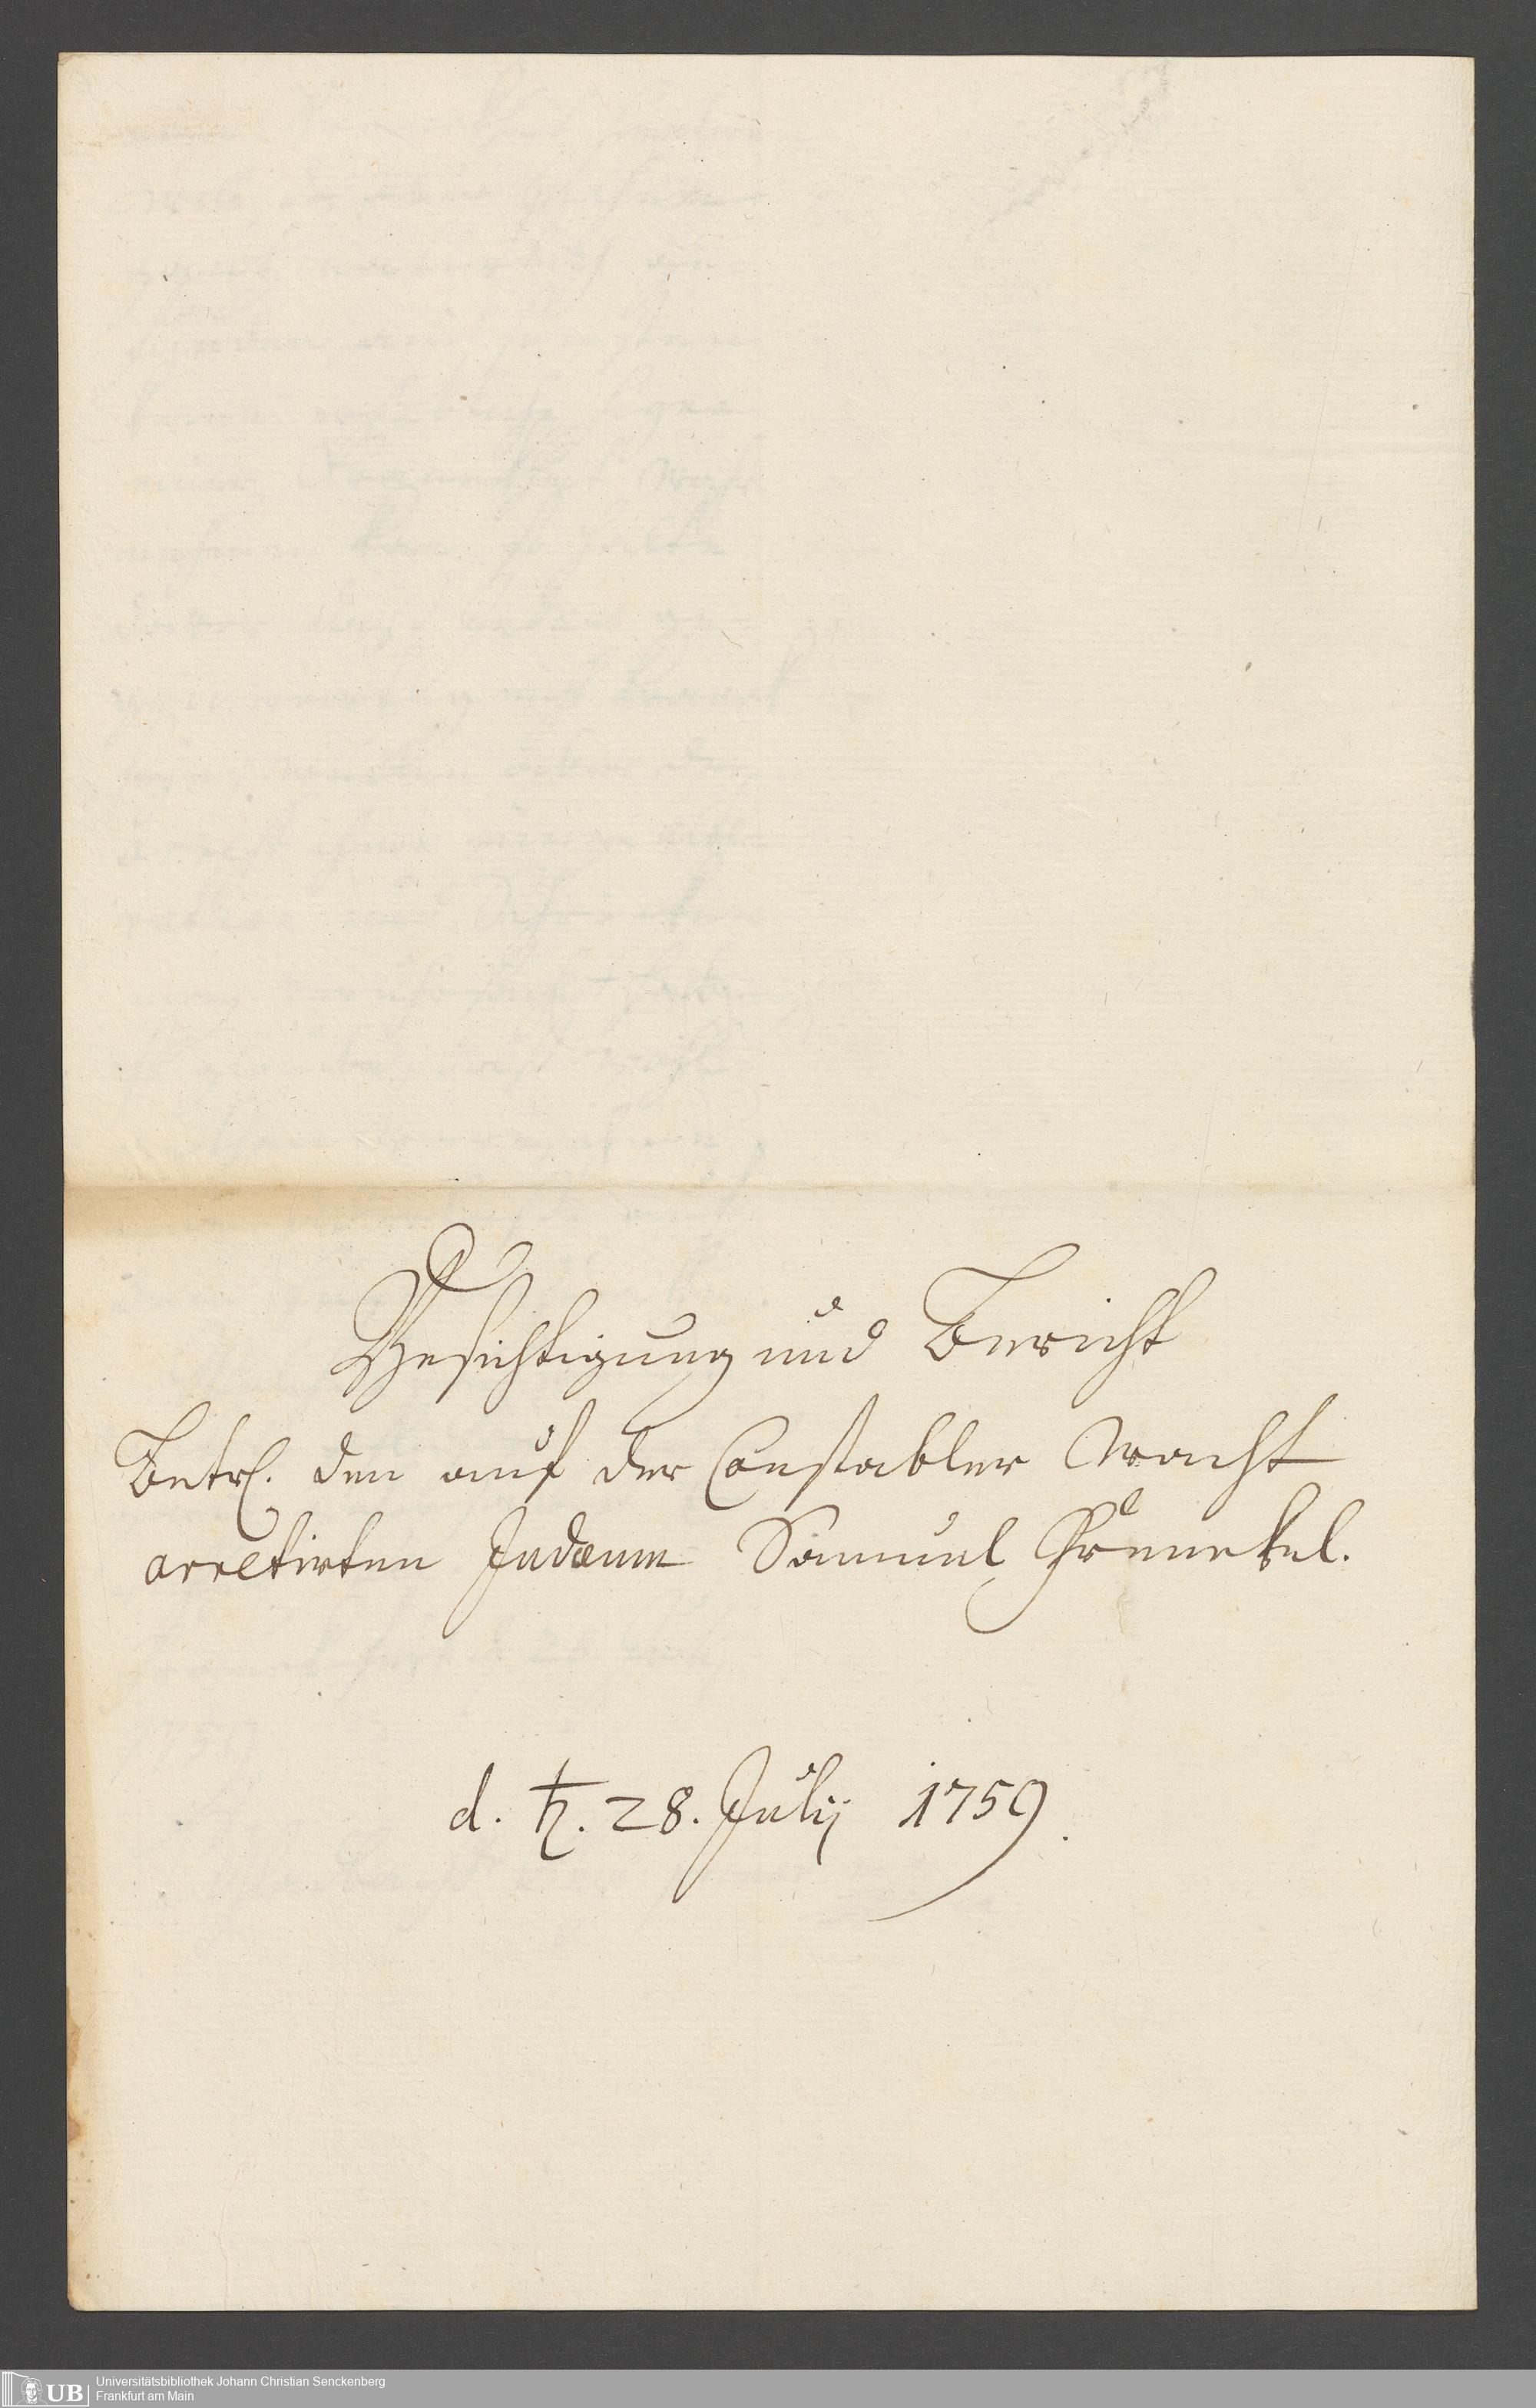 Besichtigung und Bericht
Betr. den auf der Constabler Wacht
arretirten Judaeum Samuel
d. ♄. 28. July 1759.
UB Universitätsbibliothek Johann Christian Senckenberg
Frankfurt am Main